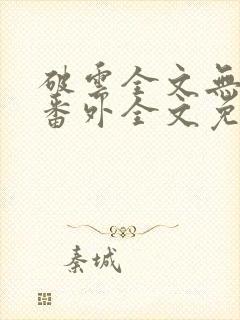 破雲全文無
番外全文免
秦城